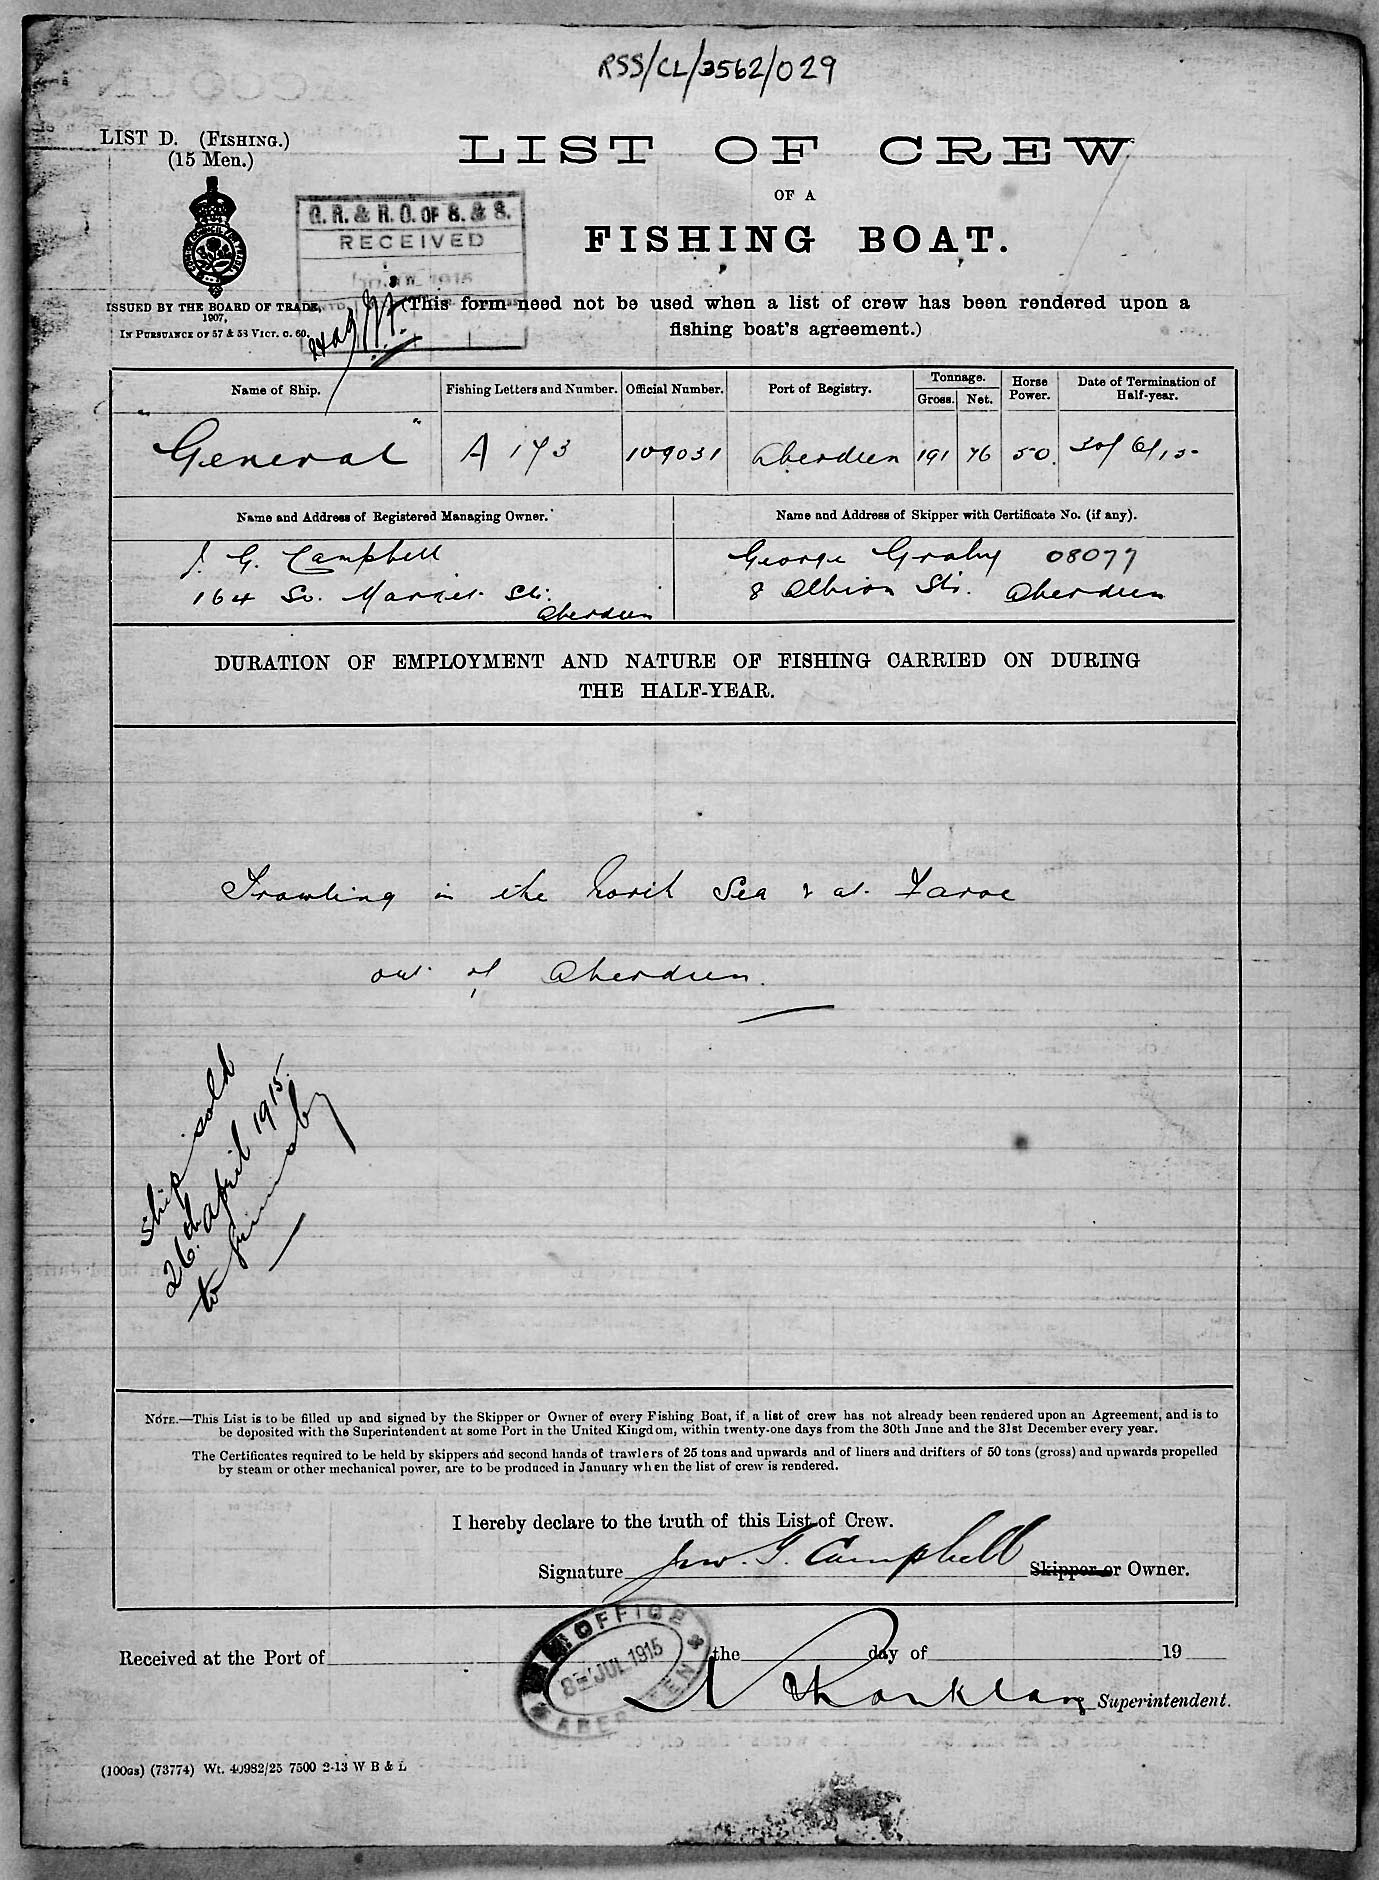 RSS/CL/3562/029
LIST D. (FISHING.)
(15 Men.)
LIST OF CREW
OF A
FISHING BOAT.
G. R. & R. O. OF S. & S.
RECEIVED
1915
ISSUED BY THE BOARD OF TRADE,
1907,
IN PURSUANCE OF 57 & 58 VICT. C. 60.
(This form need not be used when a list of crew has been rendered upon a
fishing boat's agreement.)
Name of Ship. Fishing Letters and Number. Official Number. Port of Registry. Tonnage. Gross. Net. Horse Power. Date of Termination of Half-year.
"General" A 173 109031 Aberdeen 191 76 50. 30/6/15
Name and Address of Registered Managing Owner. Name and Address of Skipper with Certificate No. (if any).
J. G. Campbell George Graby 08077
164 So. Market St. Aberdeen 8 Albion St. Aberdeen
DURATION OF EMPLOYMENT AND NATURE OF FISHING CARRIED ON DURING
THE HALF-YEAR.
Trawling in the North Sea & at Faroe
out of Aberdeen.
Ship sold
26th April 1915.
to Grimsby
NOTE.—This List is to be filled up and signed by the Skipper or Owner of every Fishing Boat, if a list of crew has not already been rendered upon an Agreement, and is to
be deposited with the Superintendent at some Port in the United Kingdom, within twenty-one days from the 30th June and the 31st December every year.
The Certificates required to be held by skippers and second hands of trawlers of 25 tons and upwards and of liners and drifters of 50 tons (gross) and upwards propelled
by steam or other mechanical power, are to be produced in January when the list of crew is rendered.
I hereby declare to the truth of this List of Crew.
Signature Jno. G. Campbell Skipper or Owner.
OFFICE
8 JUL 1915
ABERDEEN
Received at the Port of the day of 19
Superintendent.
(100GS) (73774) Wt. 40982/25 7500 2-13 W B & L